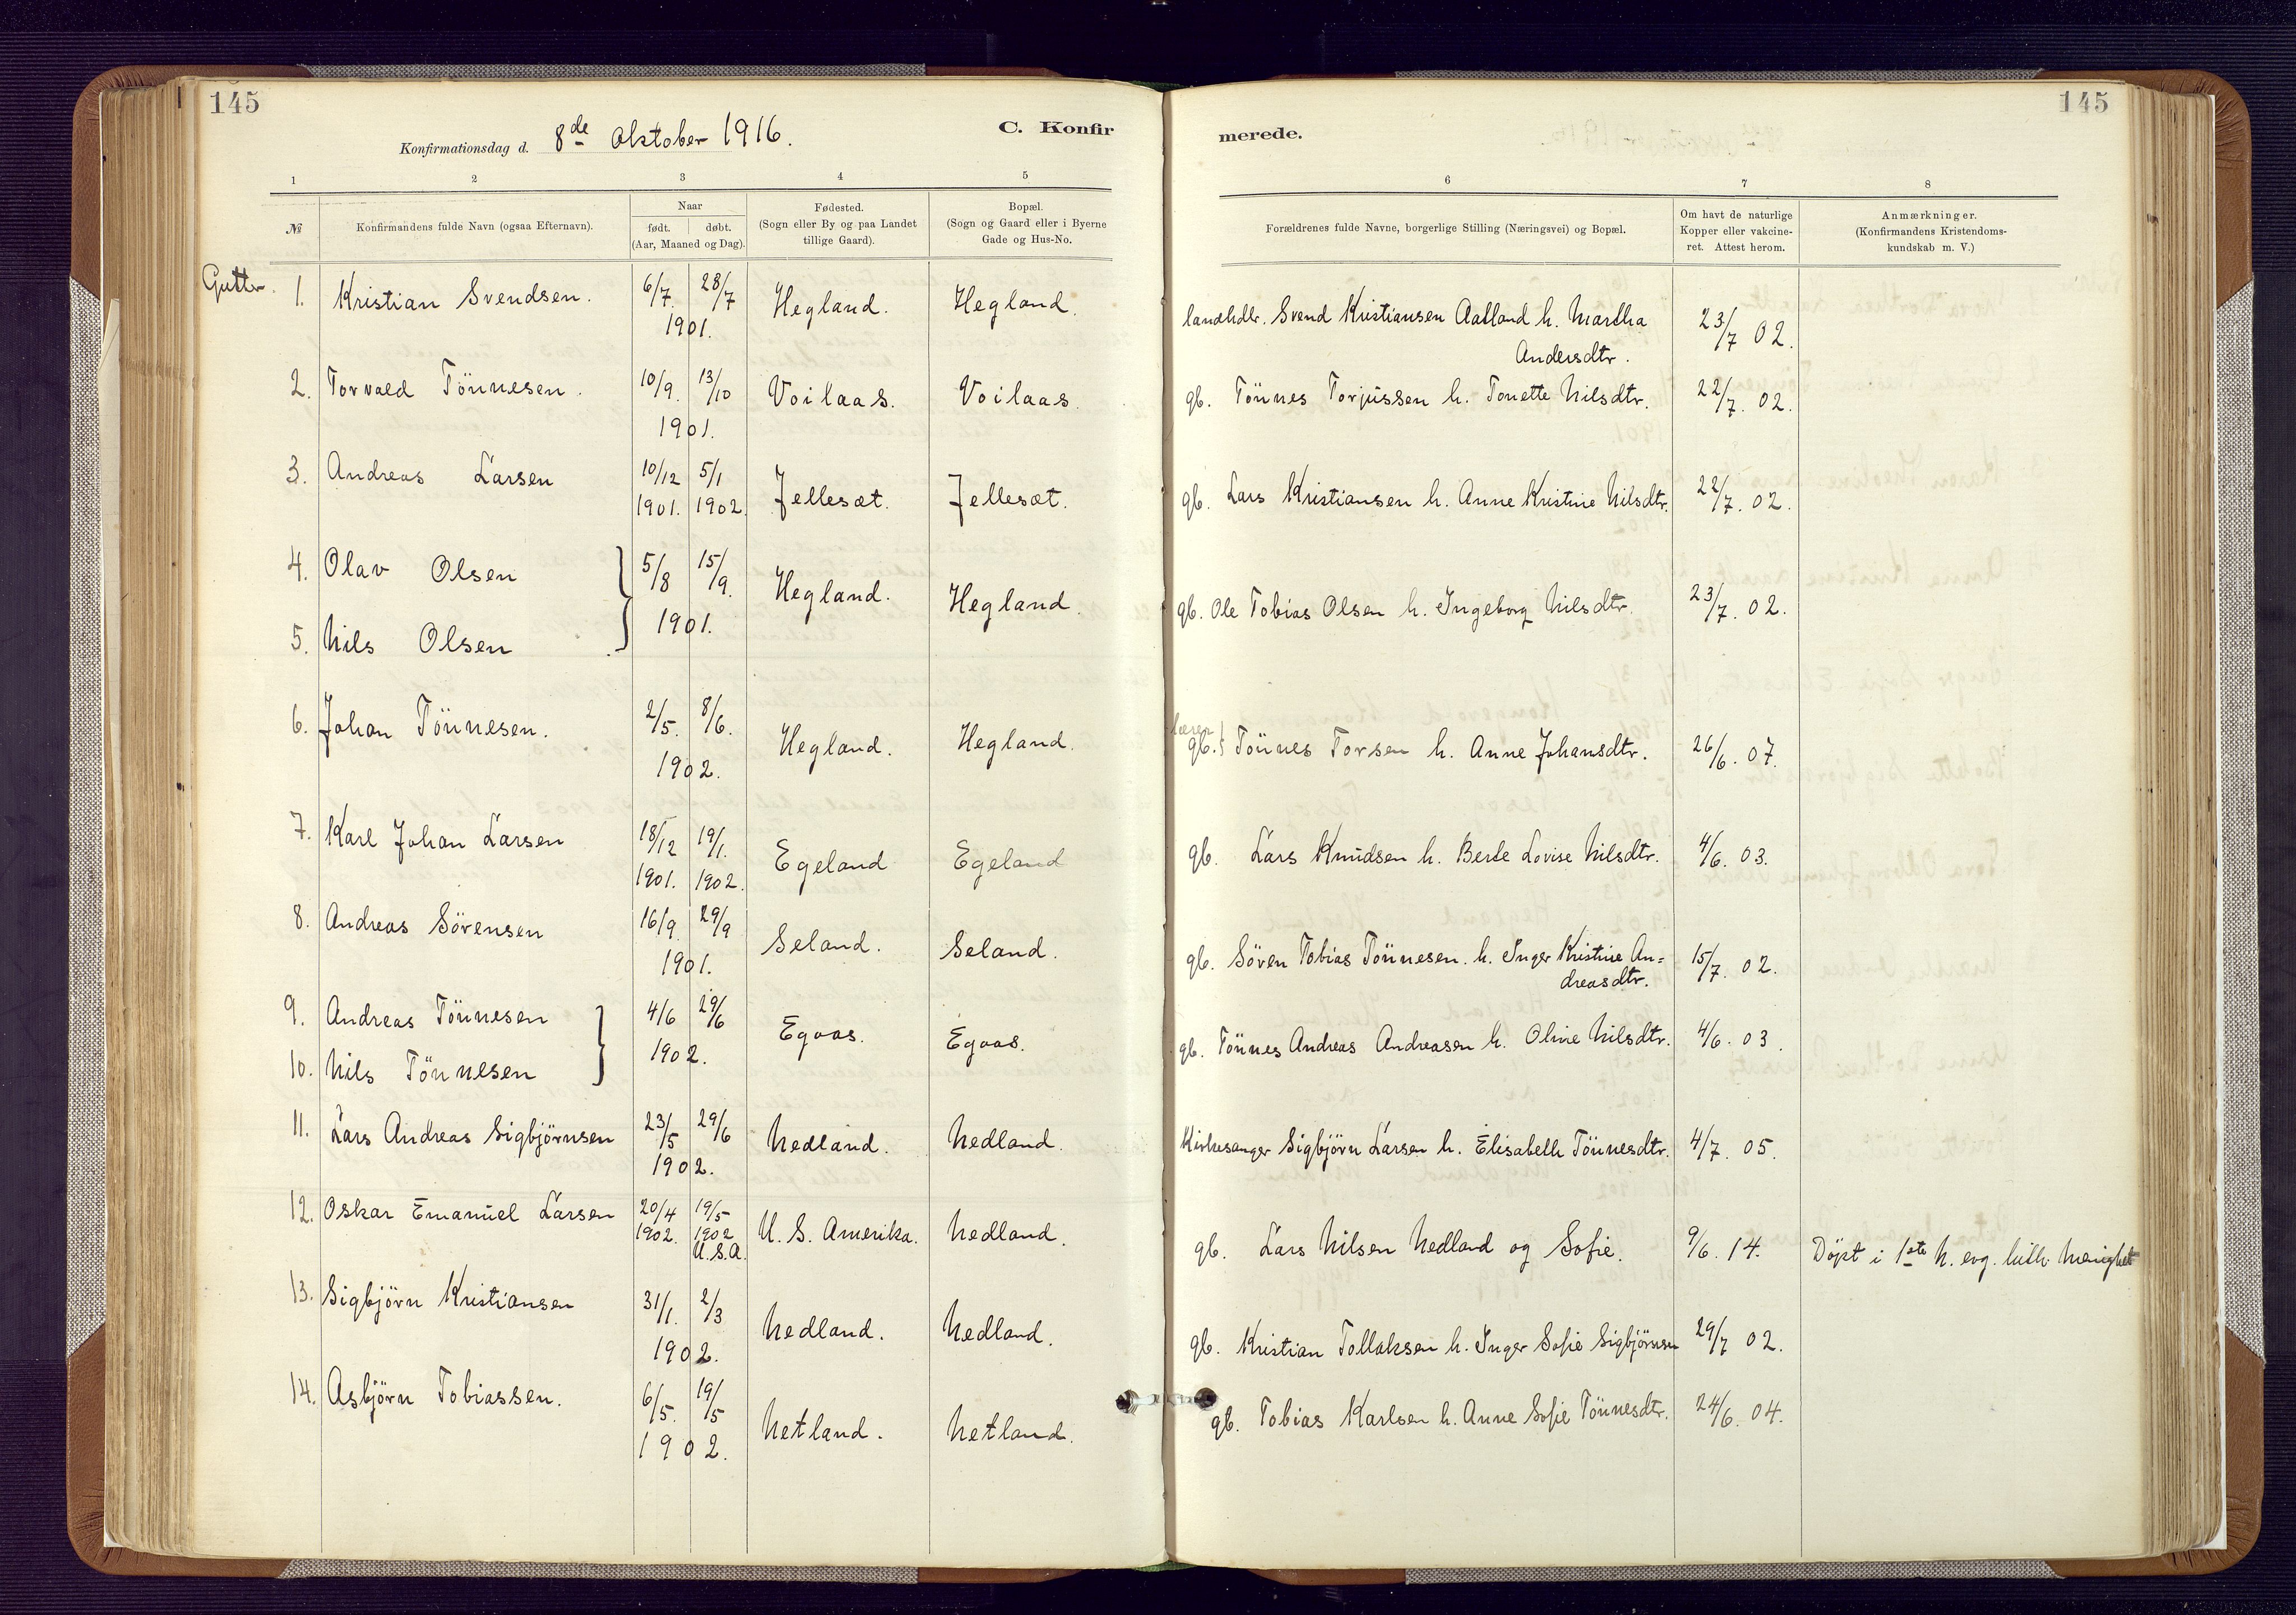 145
145
Konfirmationsdag d. 8de Oktober 1916.
C. Konfirmerede.
1 2 3 4 5 6 7 8
№
Konfirmandens fulde Navn (ogsaa Efternavn).
Naar
født. døbt.
(Aar, Maaned og Dag).
Fødested.
(Sogn eller By og paa Landet
tillige Gaard).
Bopæl.
(Sogn og Gaard eller i Byerne
Gade og Hus-No.
Forældrenes fulde Navne, borgerlige Stilling (Næringsvei) og Bopæl.
Om havt de naturlige
Kopper eller vakcine-
ret. Attest herom.
Anmærkninger.
(Konfirmandens Kristendoms-
kundskab m. V.)
Gutter.
1. Kristian Svendsen. 6/7. 28/7 1901. Hegland. Hegland. landhdlr. Svend Kristiansen Aatland h. Martha
Andersdtr. 23/7 02.
2. Torvald Tönnesen. 10/9. 13/10 1901. Voilaas. Voilaas. gb. Tönnes Torjussen h. Tonette Nilsdtr. 22/7. 02.
3. Andreas Larsen 10/12 1901. 5/1 1902. Jellesæt. Jellesæt. gb. Lars Kristiansen h. Anne Kristine Nilsdtr. 22/7. 02.
4. Olav Olsen 5/8 15/9. 1901. Hegland. Hegland. gb. Ole Tobias Olsen h. Ingeborg Nilsdtr. 23/7. 02.
5. Nils Olsen
6. Johan Tönnesen. 2/5. 8/6. 1902. Hegland. Hegland. lærer gb. Tönnes Torsen h. Anne Johansdtr. 26/6. 07.
7. Karl Johan Larsen 18/12 1901. 19/1. 1902. Egeland Egeland gb. Lars Knudsen h. Berte Lovise Nilsdtr. 4/6. 03.
8. Andreas Sörensen 16/9 29/9 1901. Seland. Seland. gb. Sören Tobias Tönnesen. h. Inger Kristine An=
dreasdtr. 15/7. 02.
9. Andreas Tönnesen 4/6 29/6 1902. Egaas. Egaas. gb. Tönnes Andreas Andreasen h. Oline Nilsdtr. 4/6. 03.
10. Nils Tönnesen
11. Lars Andreas Sigbjörnsen 23/5 29/6 1902. Nedland. Nedland. Kirkesanger Sigbjörn Larsen h. Elisabeth Tönnesdtr. 4/7. 05.
12. Oskar Emanuel Larsen 20/4 1902. 19/5 1902 U.S.A. U. S. Amerika. Nedland. gb. Lars Nilsen Nedland og Sofie. 9/6. 14. Döpt i 1ste n. evg. luth. Menighet
13. Sigbjörn Kristiansen 31/1. 2/3 1902. Nedland. Nedland. gb. Kristian Tollaksen h. Inger Sofie Sigbjörnsen 29/7 02.
14. Asbjörn Tobiassen. 6/5. 19/5 1902. Netland. Netland. gb. Tobias Karlsen h. Anne Sofie Tönnesdtr. 24/6. 04.